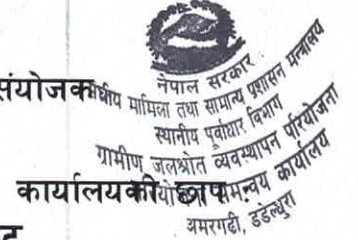 संयोजक
नेपाल सरकार
संघीय मामिला तथा सामान्य प्रशासन मन्त्रालय
स्थानीय पूर्वाधार विभाग
ग्रामीण जलश्रोत व्यवस्थापन परियोजना
कार्यालयको छाप :
समन्वय कार्यालय
अमरगढी, डडेल्धुरा